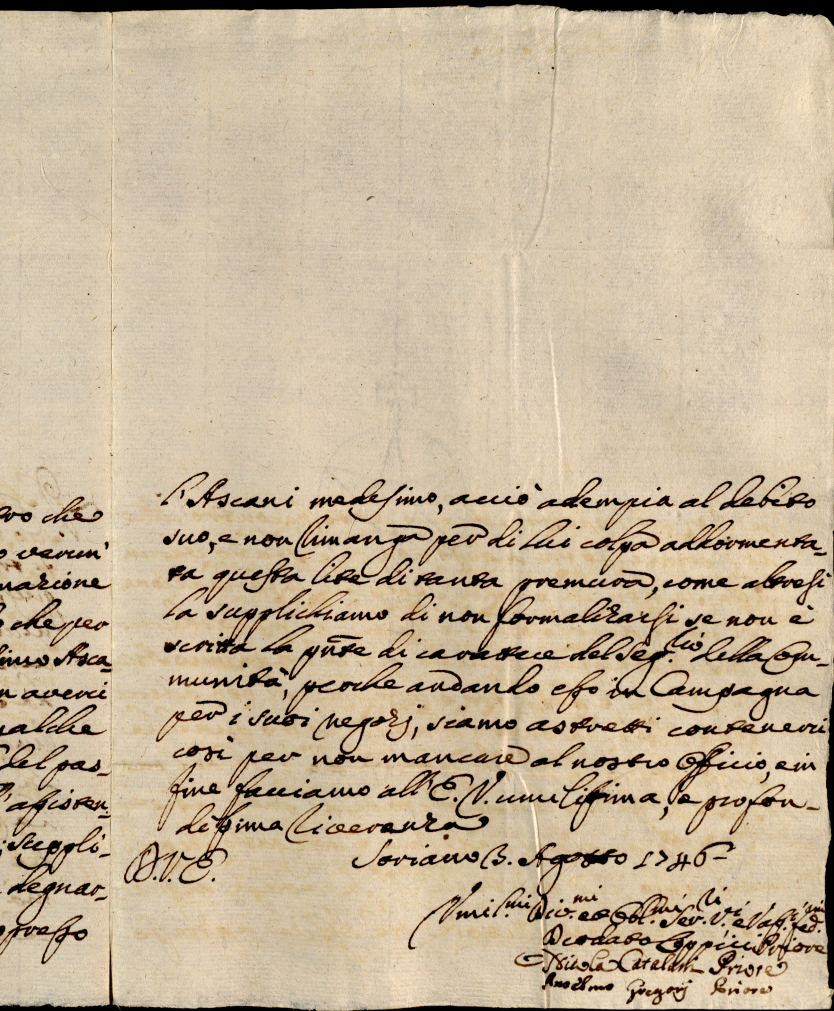 vo che
o verun'
mazione
o che per
Asca-
n averci
ualche
del pas-
assisten-
suppli-
degnar-
presso
l'Ascani medesimo, acciò adempia al debito
suo, e non rimanga per di lui colpa addormenta-
ta questa lite di tanta premura, come altresì
la supplichiamo di non formalizarsi se non è
scritta la pnte di carattere del Seg.rio della Com-
munità, perche andando esso in Campagna
per i suoi negozj, siamo astretti contenerci
così per non mancare al nostro Officio, e in
fine facciamo all'E.V. umilissima, e profon-
dissima riverenza
D.V.E. Soriano 3. Agosto 1746
Umil.mi Div.mi et Obl.mi Ser.ri e Vass.
Deodato Coppieri Priore
Nicola Catalani Priore
Anselmo Gregorj Priore